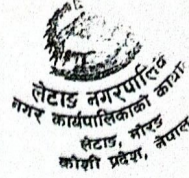 लेटाङ नगरपालिका
नगर कार्यपालिकाको
लेटाङ, मोरङ
कोशी प्रदेश, नेपाल